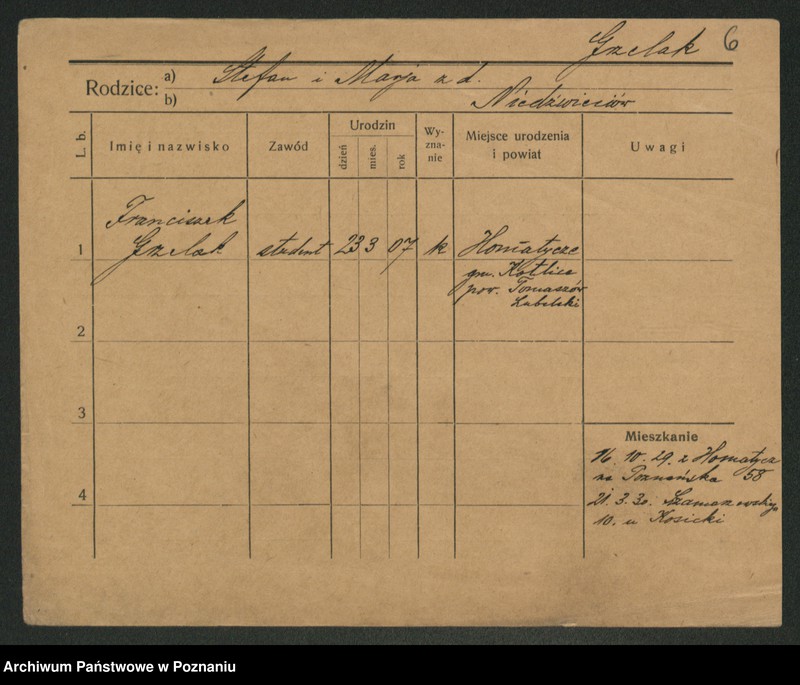 Grzelak 6
Rodzice: a) Stefan i Marja z d.
b) Niedźwieciów
L. b.
Imię i nazwisko
Zawód
Urodzin
dzień
mies.
rok
Wy-
zna-
nie
Miejsce urodzenia
i powiat
Uwagi
Franciszek
1 Grzelak student 23 3 07 k Homiatycze
gm. Kotlice
pow. Tomaszów
Lubelski
2
3
Mieszkanie
16. 10. 29. z Homiatycz
na Poznańska 58
4
21. 3. 30. Szamarzewskiego
10. u Kosicki
Archiwum Państwowe w Poznaniu